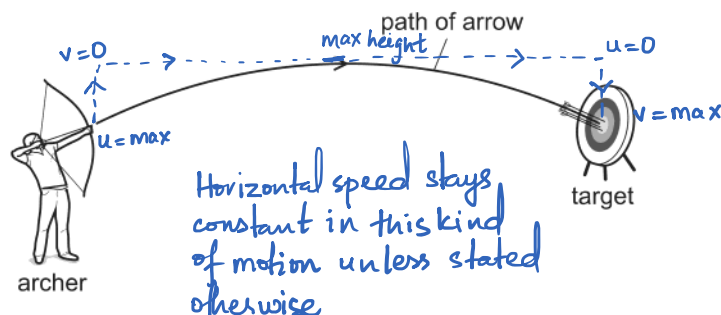 path of arrow
v=0
max height
u=0
u=max
v=max
target
Horizontal speed stays
constant in this kind
of motion unless stated
otherwise
archer